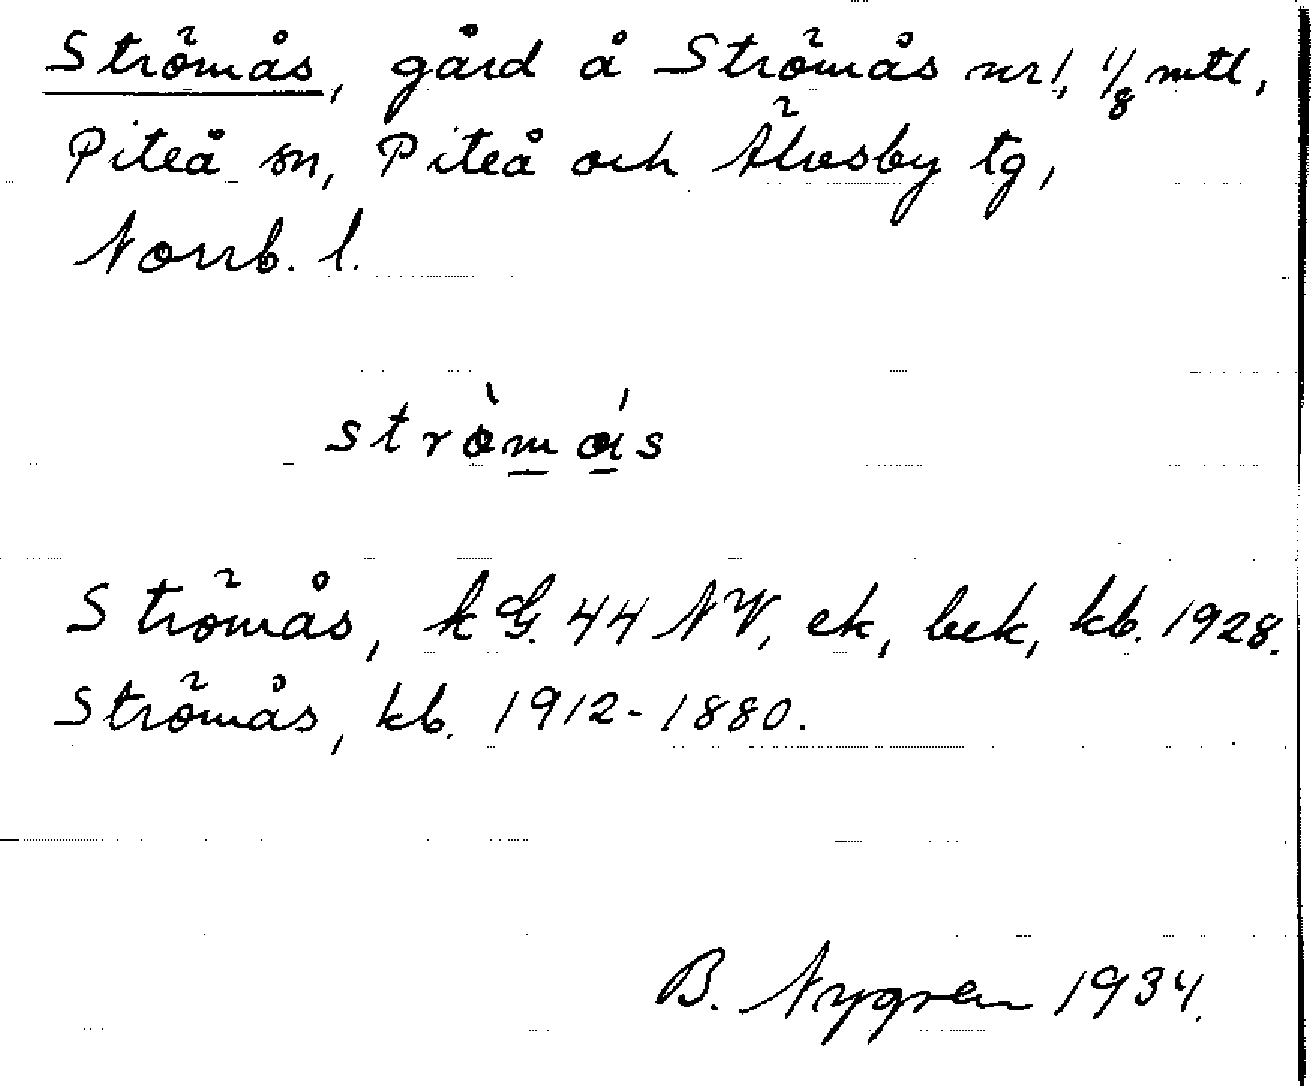 Strömås, gård å Strömås nr 1, 1/8 mtl,
Piteå sn, Piteå och Älvsby tg,
Norrb. l.
Strömås, kG. 44 NV, ek, bek, kb. 1928.
Strömås, kb. 1912-1880.
B. Nygren 1934.